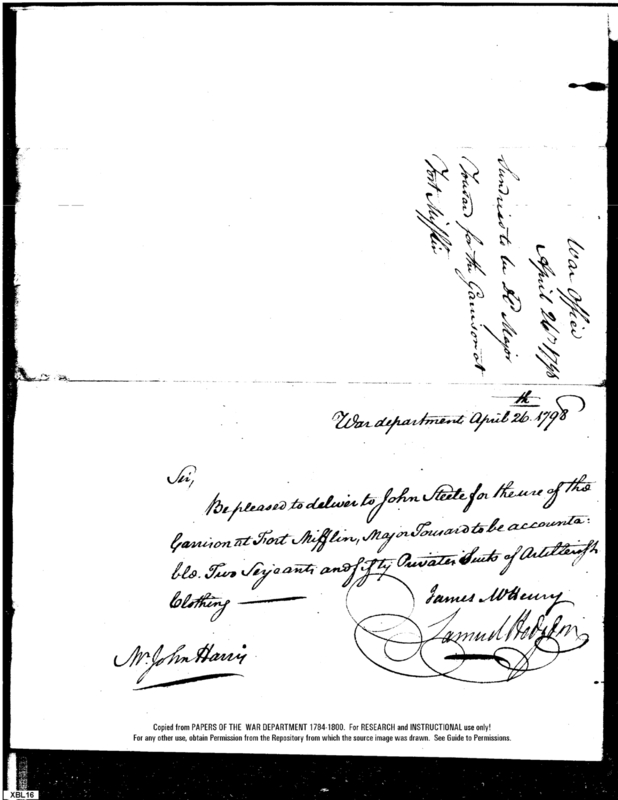 War Office
April 26th 1798
Sundries to be Dd Major
Tousard for the Garrison at
Fort Mifflin
War department April 26th 1798
Sir,
Be pleased to deliver to John Steele for the use of the
Garrison at Fort Mifflin, Major Tousard to be accounta:
ble. Two Serjeants and fifty Privates Suits of Artillerists
Clothing
James McHenry
Samuel Hodgdon
Mr. John Harris
Copied from PAPERS OF THE WAR DEPARTMENT 1784-1800. For RESEARCH and INSTRUCTIONAL use only!
For any other use, obtain Permission from the Repository from which the source image was drawn. See Guide to Permissions.
XBL16